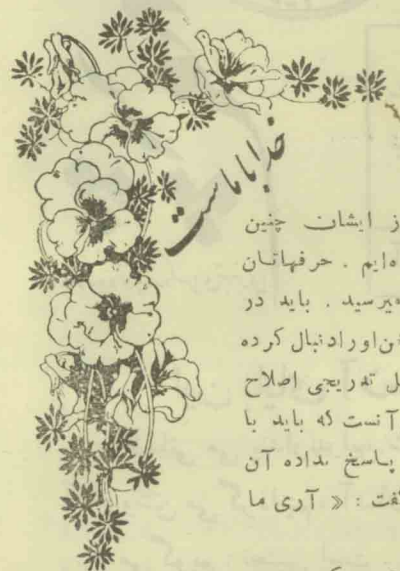 خدا با ماست
از ایشان چنین
ه‌ایم . حرفهاتان
میرسید . باید در
او را دنبال کرده
تدریجی اصلاح
آنست که باید با
پاسخ نداده آن
گفت : « آری ما